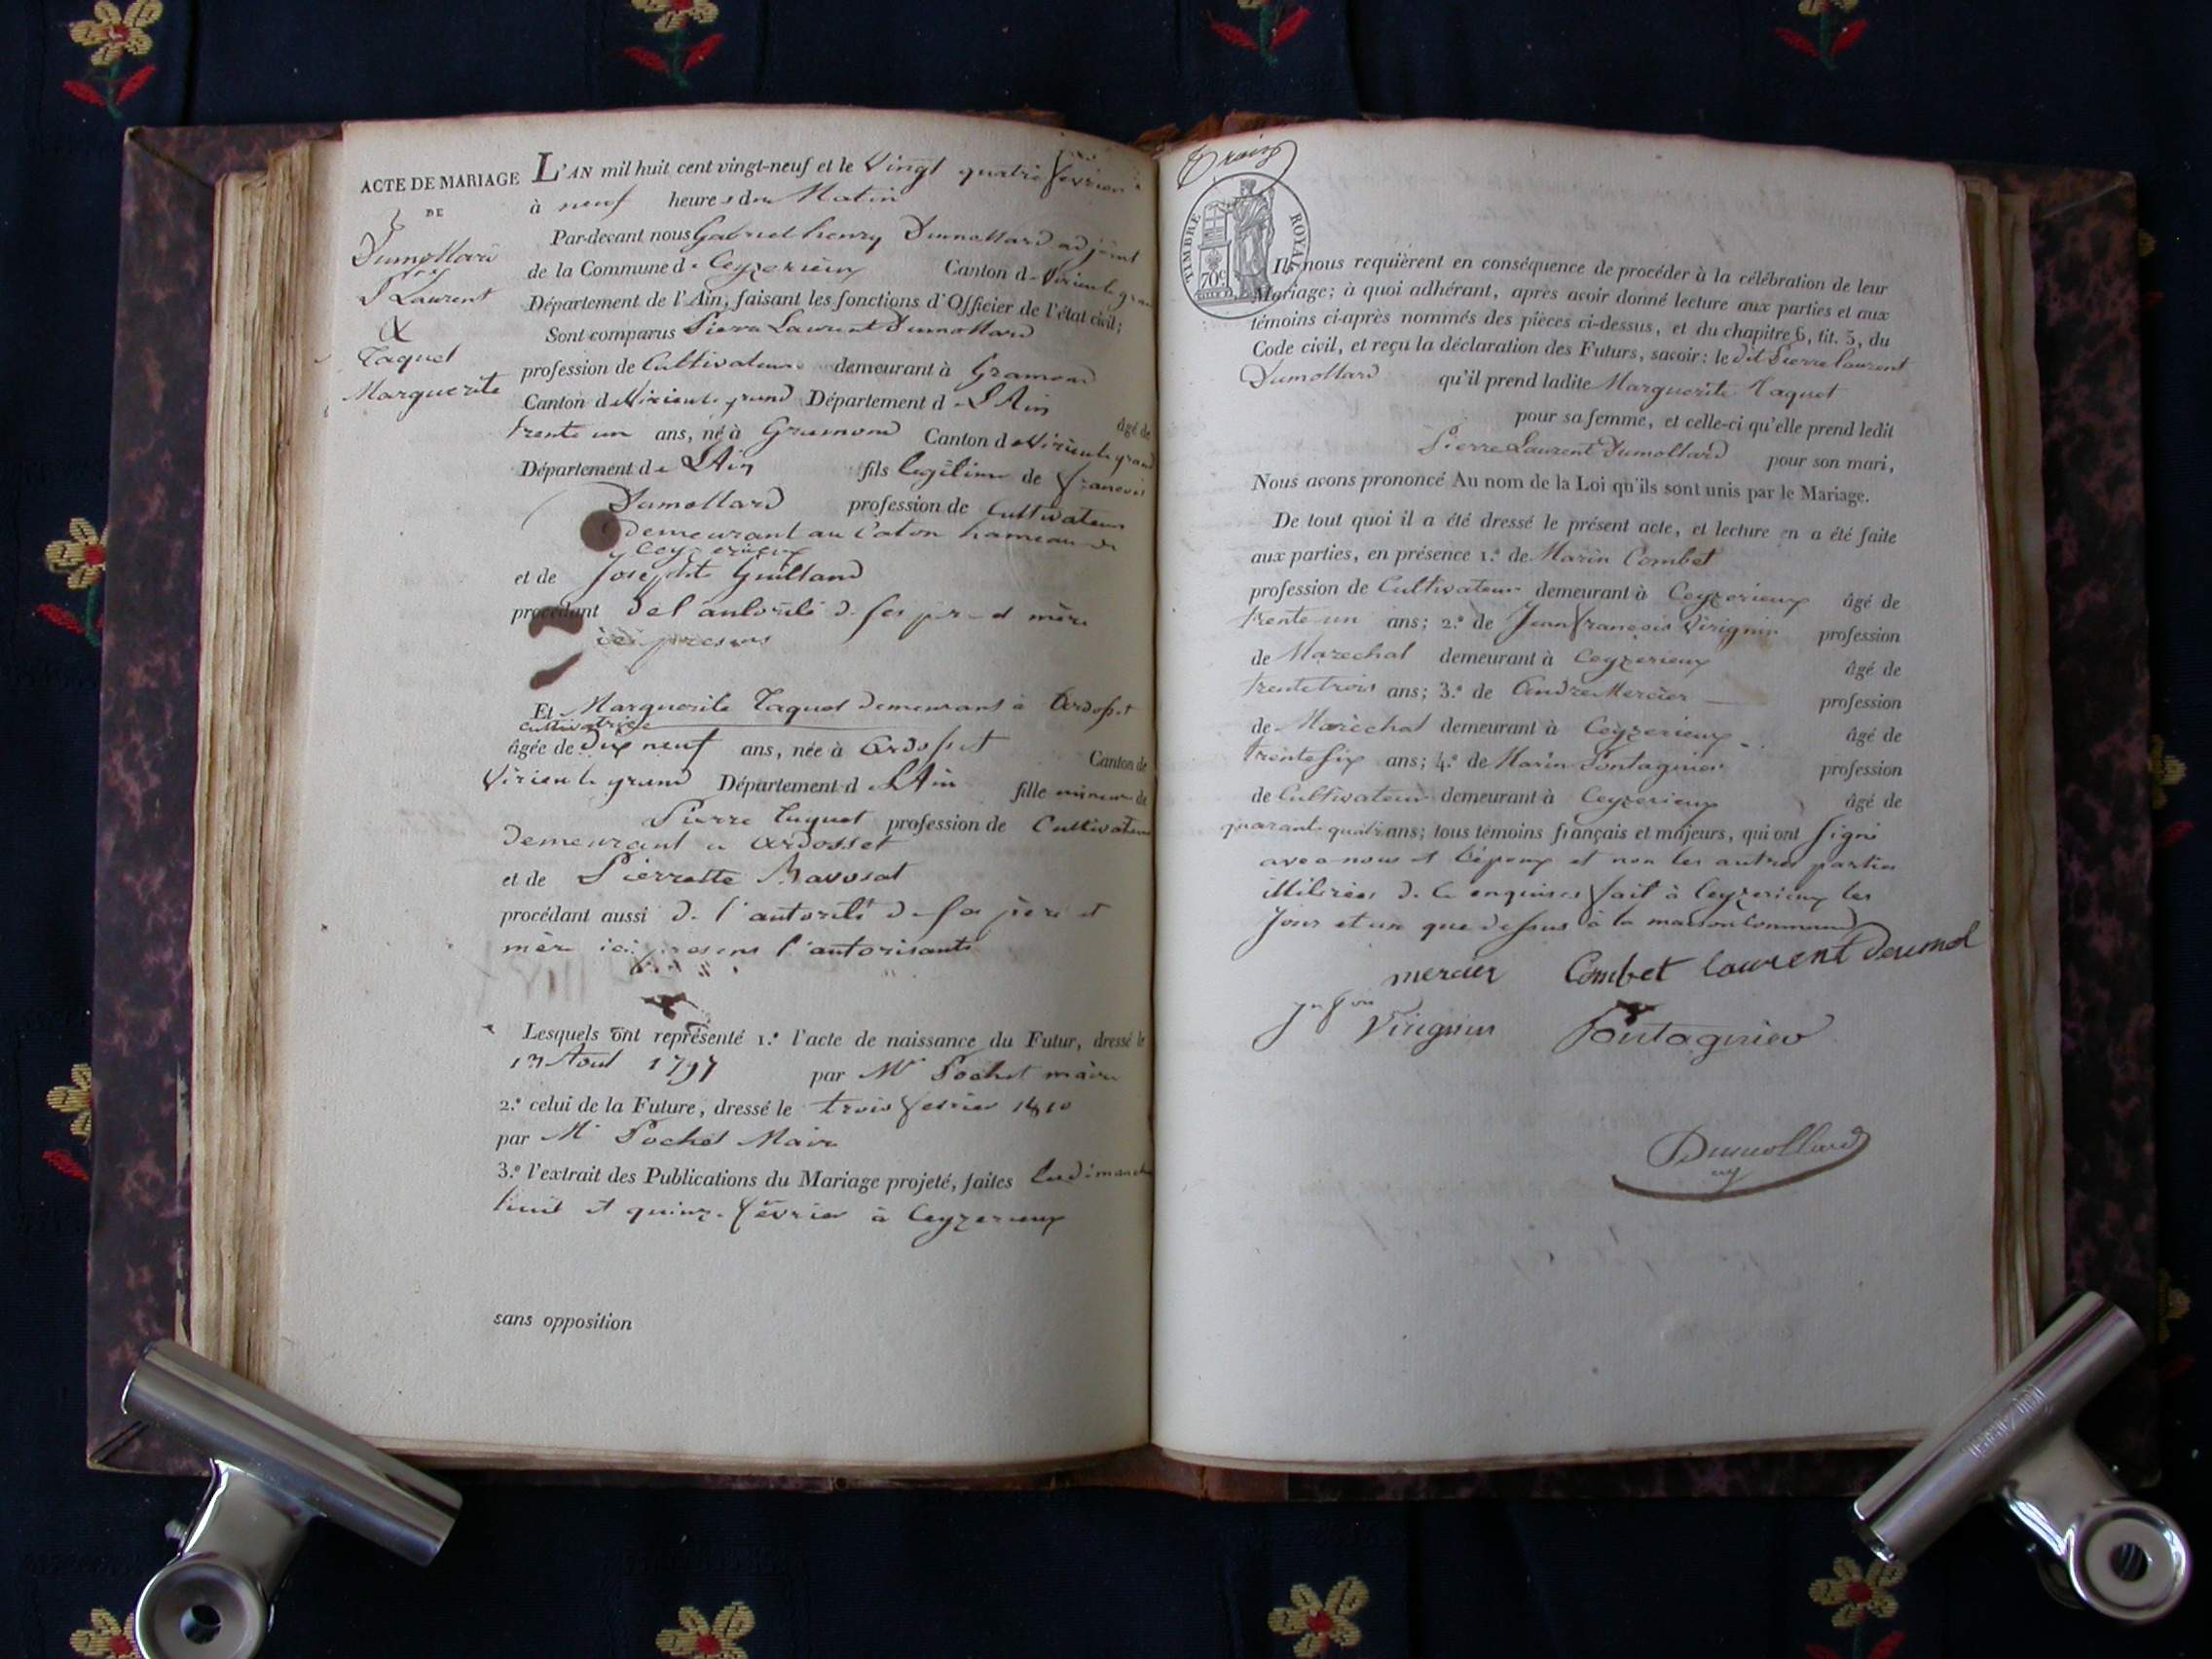 ACTE DE MARIAGE
DE
Dumollard
P. Laurent
&
Taquet
Marguerite
L'AN mil huit cent vingt-neuf et le Vingt quatre fevrier
à neuf heures du Matin
Par-devant nous Gabriel henry Dumollard adjoint
de la Commune de Ceyzerieux Canton de Virieu le grand
Département de l'Ain, faisant les fonctions d'Officier de l'état civil;
Sont comparus Pierre Laurent Dumollard
profession de Cultivateur demeurant à Gramond
Canton de Virieu le grand Département de L'Ain
âgé de
trente un ans, né à Gramond Canton de Virieu le grand
Département de L'Ain fils légitime de francois
Dumollard profession de Cultivateur
demeurant au Caton hameau de
Ceyzerieux
et de Josephte Guilland
procédant de l'autorité de ses père et mère
ici présens
Et Marguerite Taquet demeurant à Ardosset
cultivatrice
âgée de dix neuf ans, née à Ardosset Canton de
Virieu le grand Département de L'Ain fille mineure de
Pierre Taquet profession de Cultivateur
demeurant a Ardosset
et de Pierrette Ravosat
procédant aussi de l'autorité de ses père et
mère ici présens l'autorisants
Lesquels ont représenté 1.º l'acte de naissance du Futur, dressé le
13 Aout 1797 par Mr Pochet maire
2.º celui de la Future, dressé le trois fevrier 1810
par Mr Pochet Maire
3.º l'extrait des Publications du Mariage projeté, faites les dimanches
huit et quinze fevrier à Ceyzerieux
sans opposition
TIMBRE ROYAL
70c
Ils nous requièrent en conséquence de procéder à la célébration de leur
Mariage; à quoi adhérant, après avoir donné lecture aux parties et aux
témoins ci-après nommés des pièces ci-dessus, et du chapitre 6, tit. 5, du
Code civil, et reçu la déclaration des Futurs, savoir: le dit Pierre Laurent
Dumollard qu'il prend ladite Marguerite Taquet
pour sa femme, et celle-ci qu'elle prend ledit
Pierre Laurent Dumollard pour son mari,
Nous avons prononcé Au nom de la Loi qu'ils sont unis par le Mariage.
De tout quoi il a été dressé le présent acte, et lecture en a été faite
aux parties, en présence 1.º de Marin Combet
profession de Cultivateur demeurant à Ceyzerieux âgé de
trente un ans; 2.º de Jean francois Virignin profession
de Marechal demeurant à Ceyzerieux âgé de
trente trois ans; 3.º de André Mercier profession
de Maréchal demeurant à Ceyzerieux âgé de
trente six ans; 4.º de Marin Pontagnier profession
de Cultivateur demeurant à Ceyzerieux âgé de
quarante quatre ans; tous témoins français et majeurs, qui ont signé
avec nous et l'époux et non les autres parties
illitérées de ce enquises fait à Ceyzerieux les
jour et an que dessus à la maison commune
mercier Combet laurent Dumol
Virignin Pontagnier
Dumollard